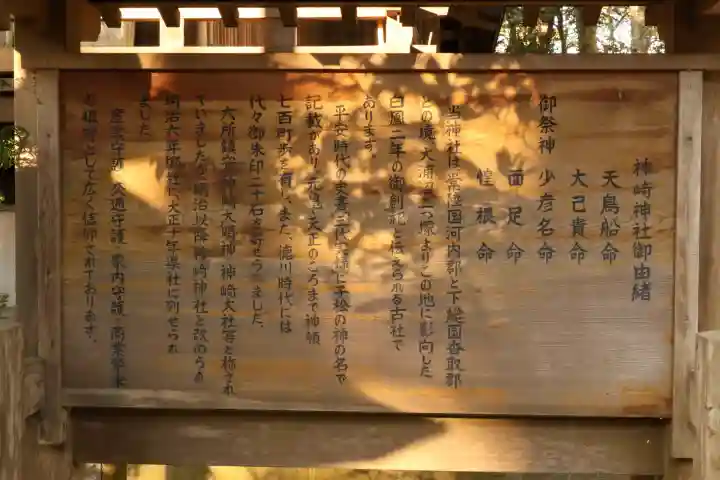 神崎神社御由緒
天鳥船命
大己貴命
御祭神 少彦名命
面足命
惶根命
当神社は、常陸国河内郡と下総国香取郡
との境、大浦沼二つ塚よりこの地に影向した
白鳳二年の御創祀と伝えられる古社で
あります。
平安時代の史書三代実録に子松の神の名で
記載があり、元亀、天正のころまで神領
七百町歩を有し、また、徳川時代には
代々御朱印二十石を寄せられました。
六所鎮守神崎大明神、神崎大社等と称され
ていましたが明治以降神崎神社と改められ
明治六年郷社に、大正十年県社に列せられ
ました。
産業守護、交通守護、家内守護、商売繁栄
の祖神としてひろく信仰されております。